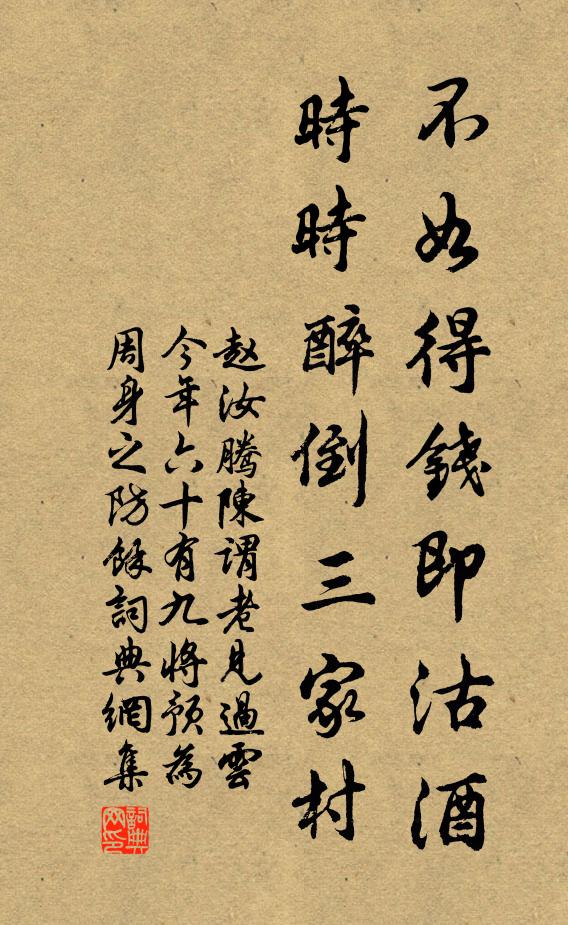 不如得錢即沽酒
時時醉倒三家村
赵汝騰陳謂老見過雲
今年六十有九將預為
周身之防餘詞典網集
詞典网印